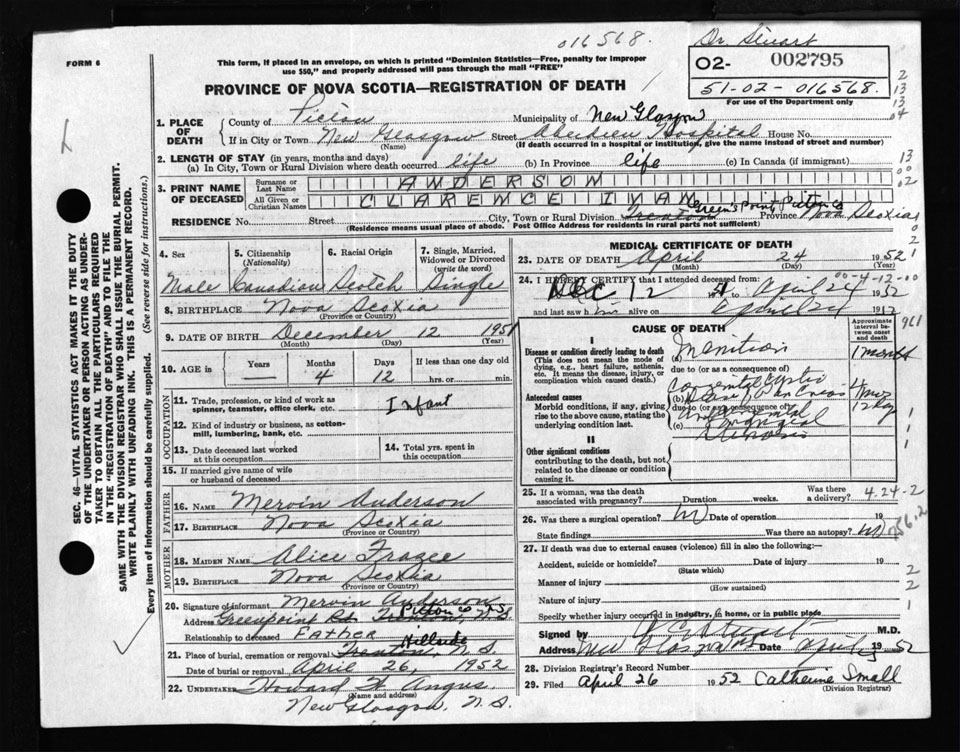 016568.
Dr. Stuart
FORM 6
This form, if placed in an envelope, on which is printed "Dominion Statistics—Free, penalty for improper
use $50," and properly addressed will pass through the mail "FREE"
02- 002795
51-02-016568.
For use of the Department only
PROVINCE OF NOVA SCOTIA—REGISTRATION OF DEATH
1. PLACE OF DEATH
County of Pictou Municipality of New Glasgow
If in City or Town New Glasgow Street Aberdeen Hospital House No.
(Name) (If death occurred in a hospital or institution, give the name instead of street and number)
2. LENGTH OF STAY (in years, months and days)
(a) In City, Town or Rural Division where death occurred life (b) In Province life (c) In Canada (if immigrant)
3. PRINT NAME OF DECEASED
Surname or Last Name ANDERSON
All Given or Christian Names CLARENCE IVAN
Green's Point Pictou Co
RESIDENCE No. Street City, Town or Rural Division Trenton Province Nova Scotia
(Residence means usual place of abode. Post Office Address for residents in rural parts not sufficient)
4. Sex 5. Citizenship (Nationality) 6. Racial Origin 7. Single, Married, Widowed or Divorced (write the word)
Male Canadian Scotch Single
8. BIRTHPLACE Nova Scotia
(Province or Country)
9. DATE OF BIRTH December 12 1951
(Month) (Day) (Year)
10. AGE in Years Months Days If less than one day old
4 12 hrs. or min.
OCCUPATION
11. Trade, profession, or kind of work as spinner, teamster, office clerk, etc. Infant
12. Kind of industry or business, as cotton-mill, lumbering, bank, etc.
13. Date deceased last worked at this occupation
14. Total yrs. spent in this occupation
15. If married give name of wife or husband of deceased
FATHER
16. NAME Mervin Anderson
17. BIRTHPLACE Nova Scotia
(Province or Country)
MOTHER
18. MAIDEN NAME Alice Frazee
19. BIRTHPLACE Nova Scotia
(Province or Country)
20. Signature of informant Mervin Anderson
Pictou Co N.S.
Address Greenspoint Rd. Trenton, N.S.
Relationship to deceased Father
Hillside
21. Place of burial, cremation or removal Trenton, N.S.
Date of burial or removal April 26, 1952
22. UNDERTAKER Howard W Angus
(Name and address)
New Glasgow, N.S.
MEDICAL CERTIFICATE OF DEATH
23. DATE OF DEATH April 24 1952
(Month) (Day) (Year)
00-4-12-00
24. I HEREBY CERTIFY that I attended deceased from:
Dec 12 51 to April 24 1952
and last saw him alive on April 24 19
961
CAUSE OF DEATH
Approximate interval between onset and death
I
Disease or condition directly leading to death
(This does not mean the mode of dying, e.g., heart failure, asthenia, etc. It means the disease, injury, or complication which caused death.)
(a) Inanition 1 month
due to (or as a consequence of)
Antecedent causes
Morbid conditions, if any, giving rise to the above cause, stating the underlying condition last.
(b) Congenital cystic disease of Pancreas 4 mos 12 days
due to (or as a consequence of)
(c) Congenital Stenosis
II
Other significant conditions
contributing to the death, but not related to the disease or condition causing it.
25. If a woman, was the death associated with pregnancy? Duration weeks. Was there a delivery?
4.24-2
26. Was there a surgical operation? No Date of operation 19
State findings Was there an autopsy? No
27. If death was due to external causes (violence) fill in also the following:—
Accident, suicide or homicide? Date of injury 19
(State which)
Manner of injury
(How sustained)
Nature of injury
Specify whether injury occurred in industry, in home, or in public place
Signed by M.D.
Address New Glasgow NS Date April 52
28. Division Registrar's Record Number
29. Filed April 26 1952 Catherine Small
(Division Registrar)
SEC. 46—VITAL STATISTICS ACT MAKES IT THE DUTY
OF THE UNDERTAKER OR PERSON ACTING AS UNDERTAKER
TO OBTAIN ALL THE PARTICULARS REQUIRED
IN THE "REGISTRATION OF DEATH" AND TO FILE THE
SAME WITH THE DIVISION REGISTRAR WHO SHALL ISSUE THE BURIAL PERMIT.
WRITE PLAINLY WITH UNFADING INK. THIS IS A PERMANENT RECORD.
Every item of information should be carefully supplied. (See reverse side for instructions.)